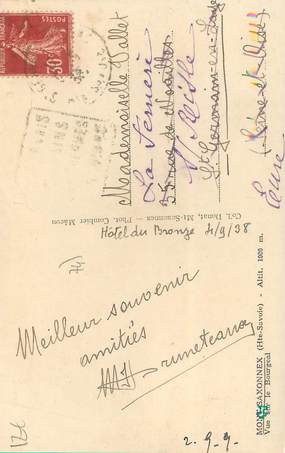 POSTES
30
Mademoiselle Vallet
La
35 rue de Noailles
St Germain-en-Laye
Seine et Oise
Eure
Coll. Donat, Mt-Saxonnex — Phot. Combier Mâcon
Hôtel du Bronze 4/9/38
74
Meilleur souvenir
amitiés
MONT-SAXONNEX (Hte-Savoie) - Altit. 1000 m.
Vue sur le Bourgeal
12€
2.9.9.